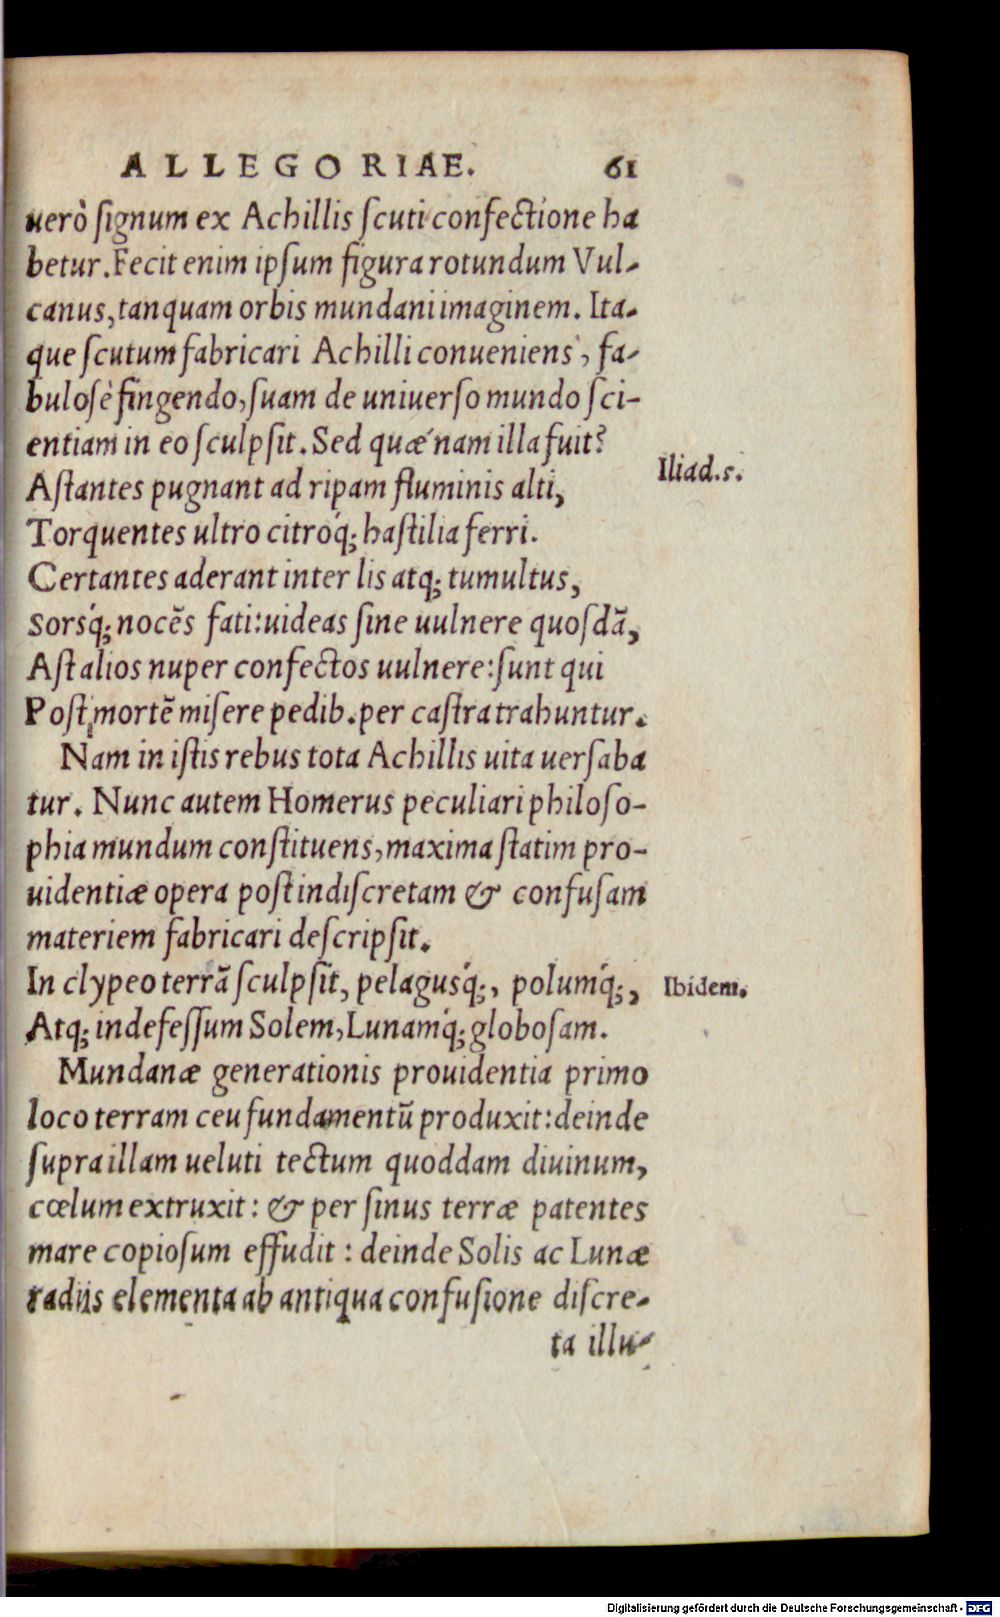 ALLEGORIAE. 61
uerò ſignum ex Achillis ſcuti confectione ha
betur. Fecit enim ipſum figura rotundum Vul-
canus, tanquam orbis mundani imaginem. Ita-
que ſcutum fabricari Achilli conueniens, fa-
buloſè fingendo, ſuam de uniuerſo mundo ſci-
entiam in eo ſculpſit. Sed quæ´nam illa fuit?
Aſtantes pugnant ad ripam fluminis alti,
Iliad.s.
Torquentes ultro citroq́; haſtilia ferri.
Certantes aderant inter lis atq; tumultus,
Sorsq́; nocẽs fati: uideas ſine uulnere quoſdã,
Aſt alios nuper confectos uulnere: ſunt qui
Poſt mortẽ miſere pedib. per caſtra trahuntur.
Nam in iſtis rebus tota Achillis uita uerſaba
tur. Nunc autem Homerus peculiari philoſo-
phia mundum conſtituens, maxima ſtatim pro-
uidentiæ opera poſt indiſcretam & confuſam
materiem fabricari deſcripſit.
In clypeo terrã ſculpſit, pelagusq́;, polumq́;,
Ibidem.
Atq; indefeſſum Solem, Lunamq́; globoſam.
Mundanæ generationis prouidentia primo
loco terram ceu fundamentũ produxit: deinde
ſupra illam ueluti tectum quoddam diuinum,
cœlum extruxit: & per ſinus terræ patentes
mare copioſum effudit: deinde Solis ac Lunæ
radijs elementa ab antiqua confuſione diſcre-
ta illu-
Digitalisierung gefördert durch die Deutsche Forschungsgemeinschaft - DFG